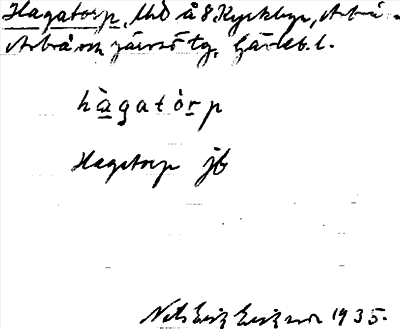 Hagatorp, lhd å 8 Kyrkbyn, Arbrå.
Arbrå och Järvsö tg, Gävleb. l.
hàgatòrp
Hagatorp jb
Nils Erik Eriksson 1935.